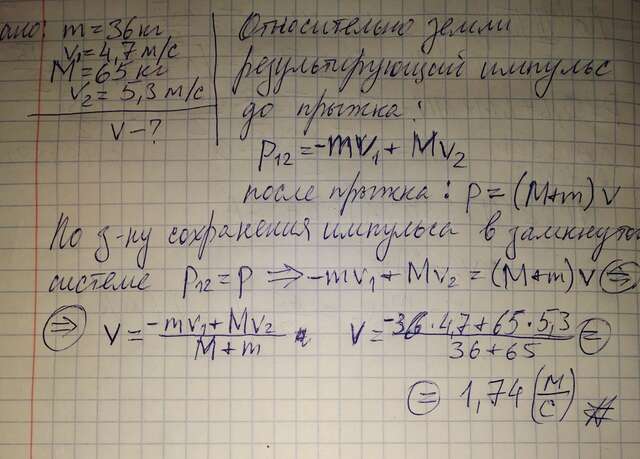 ано: m = 36 кг
v₁ = 4,7 м/с
M = 65 кг
v₂ = 5,3 м/с
v – ?
Относительно земли
результирующий импульс
до прыжка:
p₁₂ = -mv₁ + Mv₂
после прыжка: p = (M+m)v
По з-ну сохранения импульса в замкнутой
системе p₁₂ = p ⇒ -mv₁ + Mv₂ = (M+m)v ⇒
⇒ v = (-mv₁ + Mv₂)/(M+m) v = (-36·4,7+65·5,3)/(36+65) =
= 1,74 (м/с) #